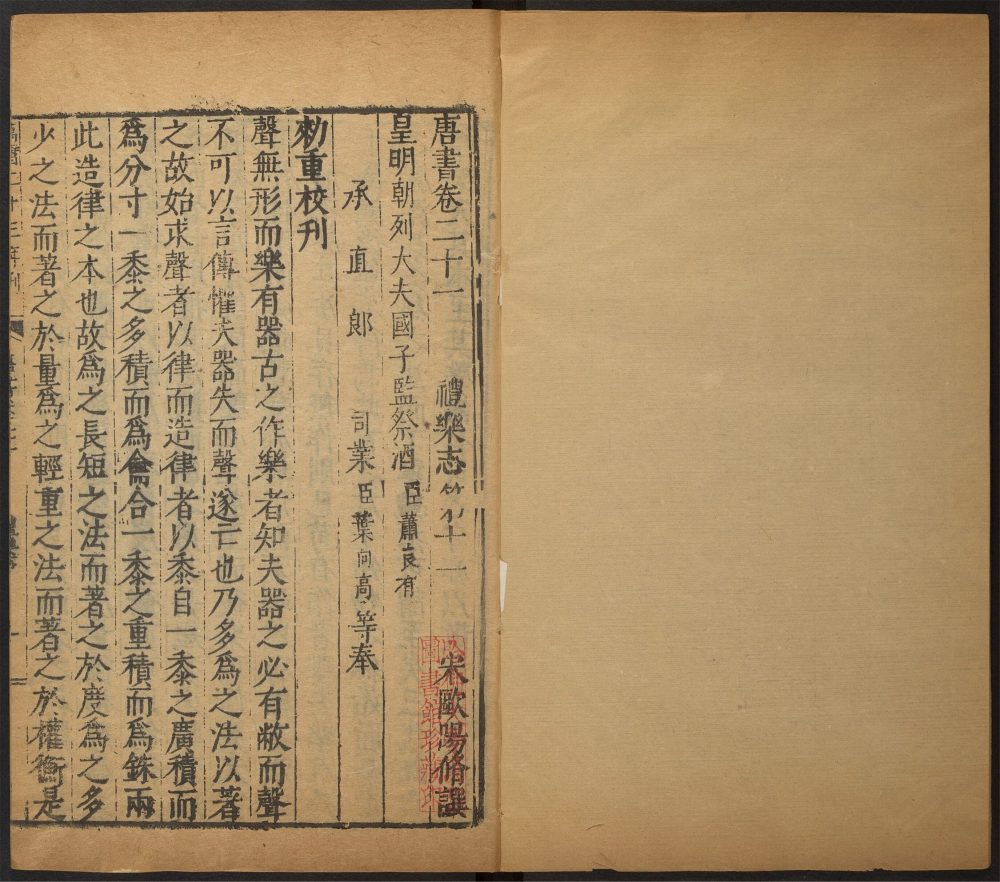 唐書卷二十一 禮樂志第十一 宋歐陽脩譔
皇明朝列大夫國子監祭酒臣蕭良有
承直郎司業臣葉向高等奉
勑重校刋
聲無形而樂有器古之作樂者知夫器之必有敝而聲
不可以言傳懼夫器失而聲遂亡也乃多爲之法以著
之故始求聲者以律而造律者以黍自一黍之廣積而
爲分寸一黍之多積而爲龠合一黍之重積而爲銖兩
此造律之本也故爲之長短之法而著之於度爲之多
少之法而著之於量爲之輕重之法而著之於權衡是
圖書館珍藏印